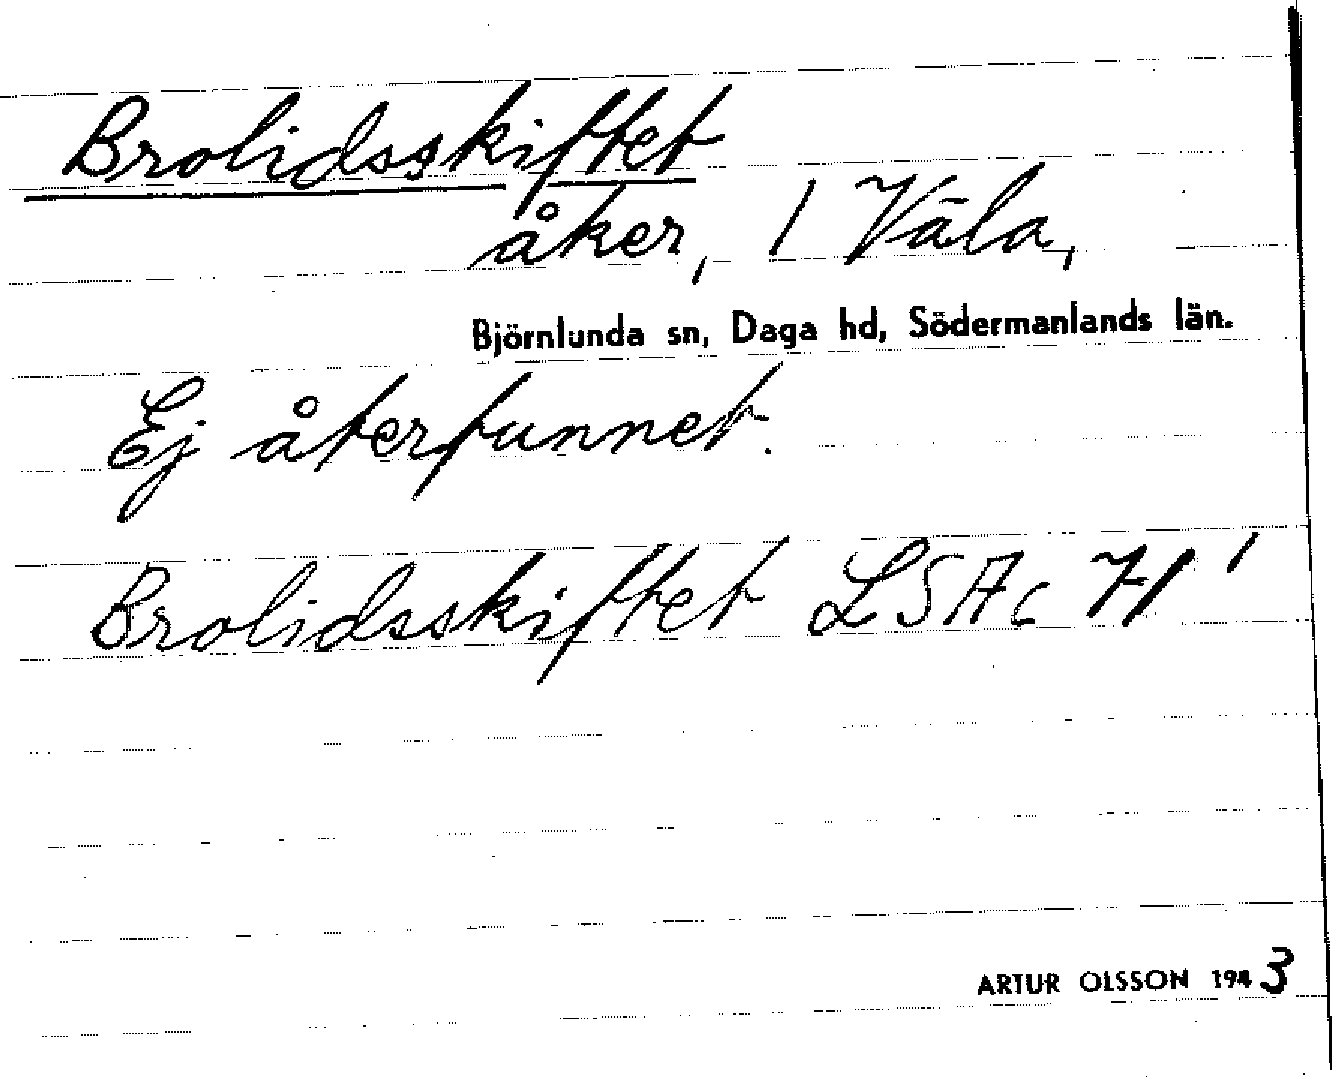 Brolidsskiftet
åker, 1 Väla,
Björnlunda sn, Daga hd, Södermanlands län.
Ej återfunnet.
Brolidsskiftet LSAc H'
ARTUR OLSSON 1943